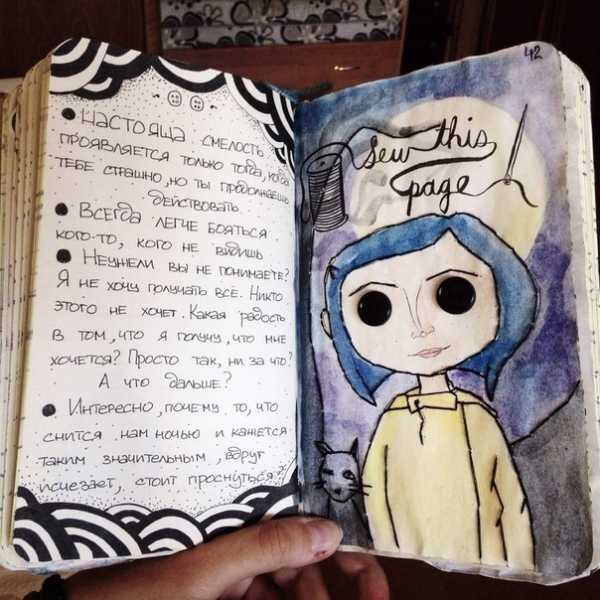 • Настояща смелость
проявляется только тогда, когда
тебе страшно, но ты продолжаешь
действовать.
• Всегда легче бояться
кого-то, кого не видишь
• Неужели вы не понимаете?
Я не хочу получать всё. Никто
этого не хочет. Какая радость
в том, что я получу, что мне
хочется? Просто так, ни за что?
А что дальше?
• Интересно, почему то, что
снится нам ночью и кажется
таким значительным, вдруг
исчезает, стоит проснуться?
42
Sew this
page